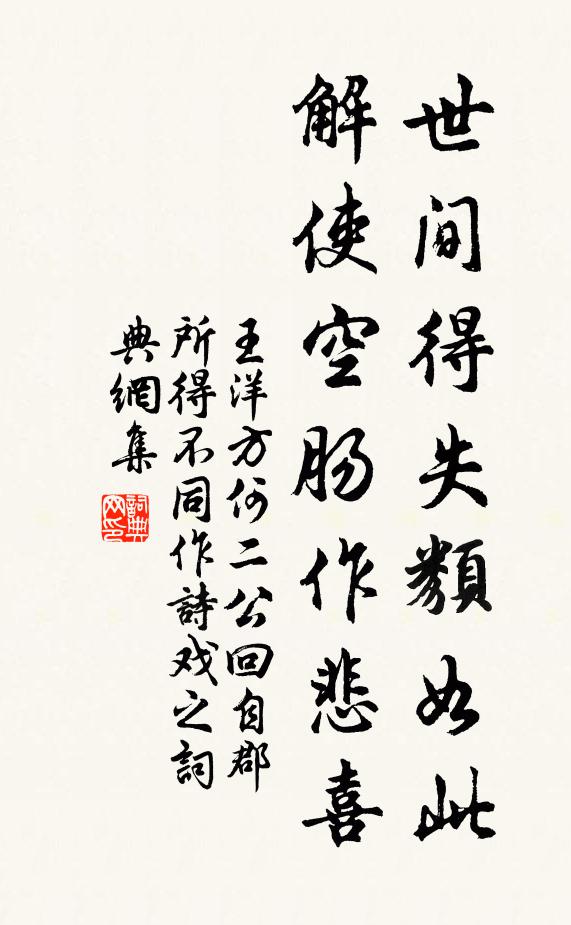 世間得失類如此
解使空腸作悲喜
王洋方何二公回自郡
所得不同作詩戏之詞
典網集
詞典网印